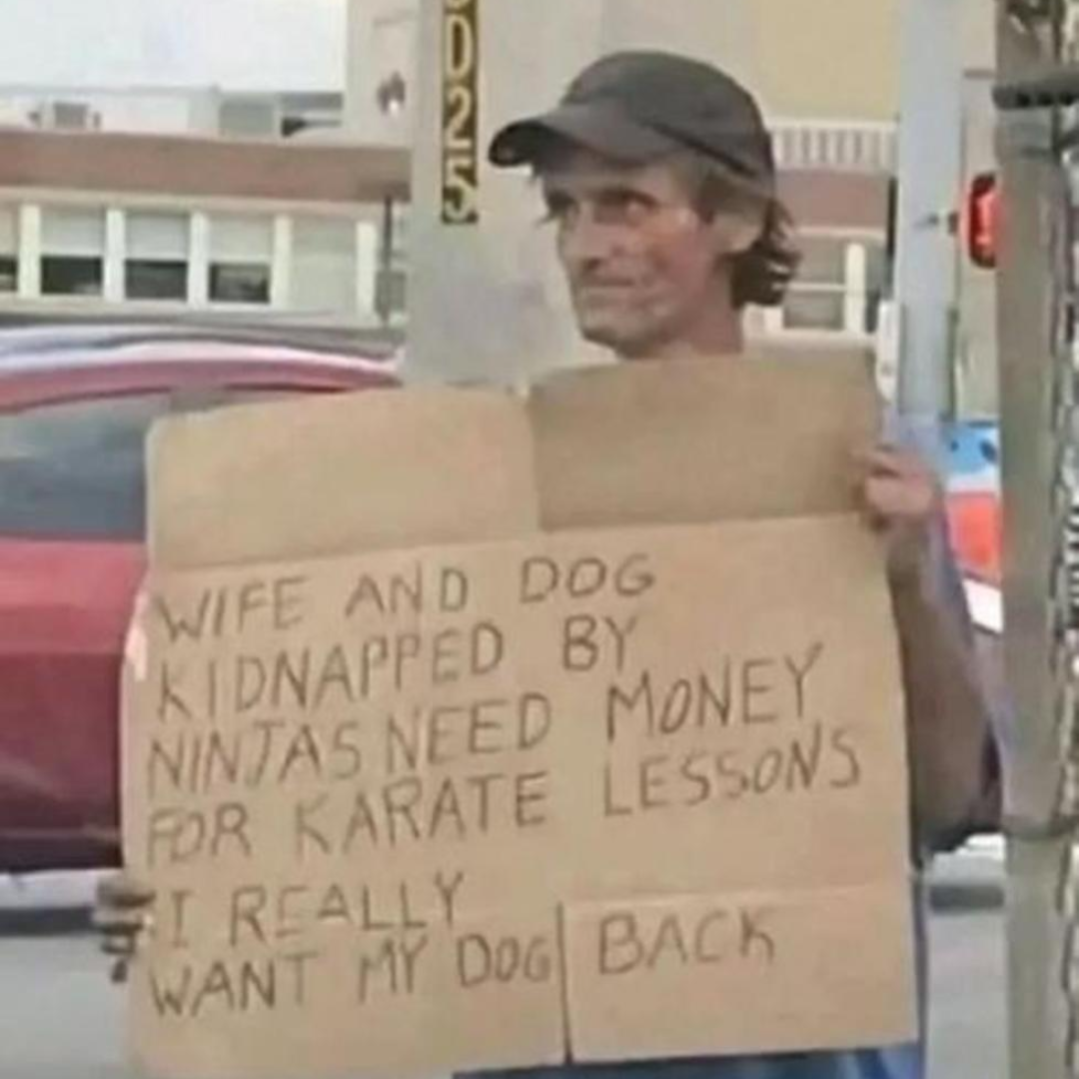 0025
WIFE AND DOG
KIDNAPPED BY
NINJAS NEED MONEY
FOR KARATE LESSONS
I REALLY
WANT MY DOG BACK